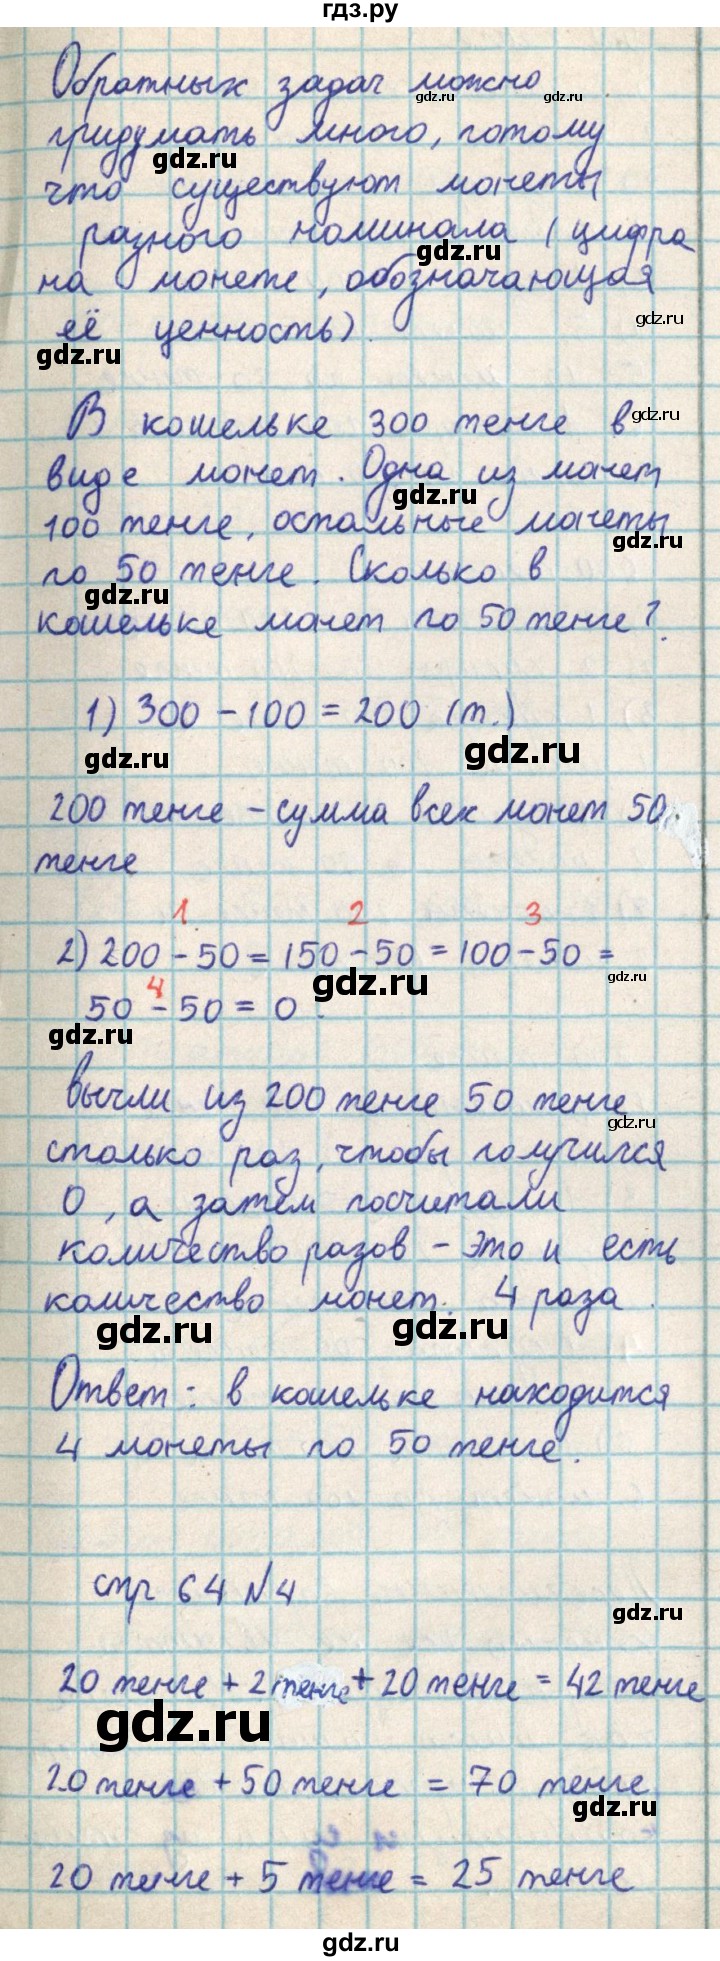 гдз.ру
Обратных задач можно
придумать много, потому
что существуют монеты
разного номинала (цифра
на монете, обозначающая
её ценность).
В кошельке 300 тенге в
виде монет. Одна из монет
100 тенге, остальные монеты
по 50 тенге. Сколько в
кошельке монет по 50 тенге?
1) 300 - 100 = 200 (т.)
200 тенге - сумма всех монет 50
тенге
1 2 3
2) 200 - 50 = 150 - 50 = 100 - 50 =
4
50 - 50 = 0.
вычли из 200 тенге 50 тенге
столько раз, чтобы получился
0, а затем посчитали
количество разов - это и есть
количество монет. 4 раза.
Ответ: в кошельке находится
4 монеты по 50 тенге.
стр 64 №4
20 тенге + 2 тенге + 20 тенге = 42 тенге
20 тенге + 50 тенге = 70 тенге
20 тенге + 5 тенге = 25 тенге
gdz.ru